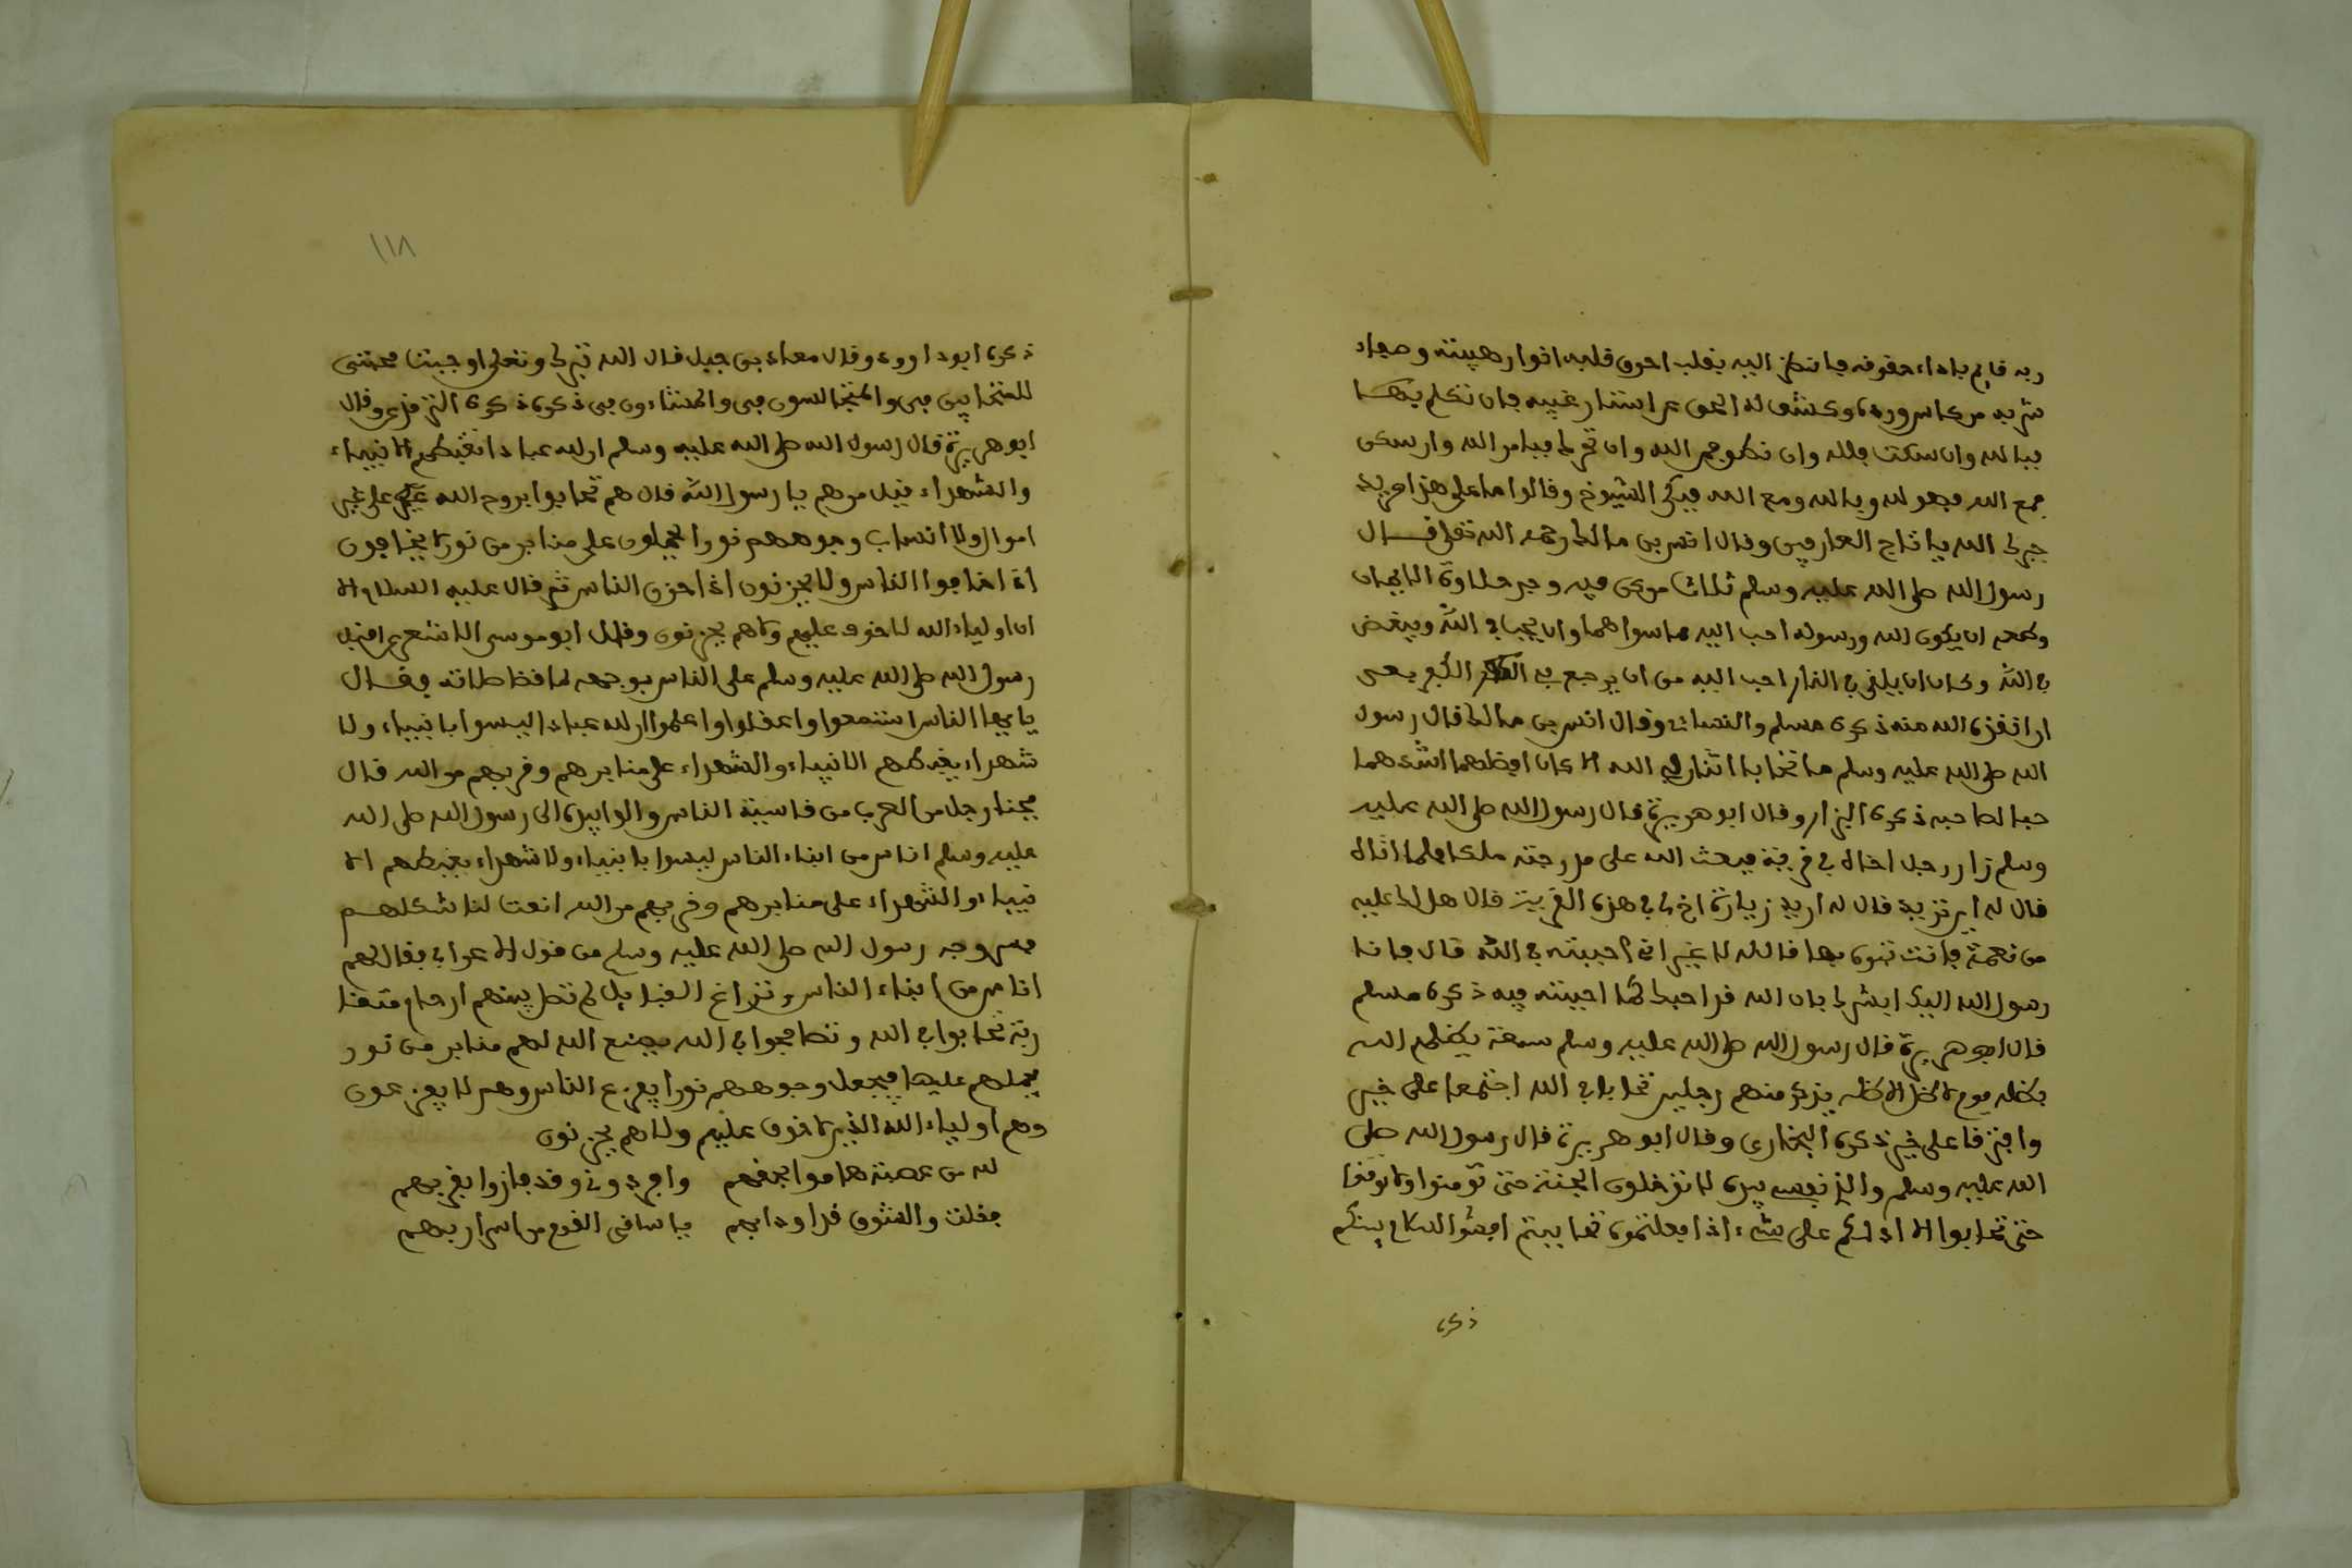 ربه قايم باداء حقوقه ناظر اليه بقلبه احرق قلبه انوار هيبته وصفاء
شربه من كاس وده وكشف له الحق عن استار غيبه فان تكلم
فبالله وان سكت فلله وان نطق فعن الله وان تحرك فبامر الله وان سكن
فمع الله فهو لله وبالله ومع الله فبكى الشيوخ وقالوا ما على هذا مزيد
جبرك الله يا تاج العارفين وقال انس بن مالك رحمه الله تعلى قال
رسول الله صلى الله عليه وسلم ثلاث من كن فيه وجد حلاوة الايمان
وطعمه ان يكون الله ورسوله احب اليه مما سواهما وان يحب في الله ويبغض
في الله وكان ان يلقى في النار احب اليه من ان يرجع في الكفر بعد
اذ انقذه الله منه ذكره مسلم والنساءي وقال انس بن مالك قال رسول
الله صلى الله عليه وسلم ما تحابا اثنان في الله الا كان افضلهما اشدهما
حبا لصاحبه ذكره البزار وقال ابو هريرة قال رسول الله صلى الله عليه
وسلم زار رجل اخاله في قرية فبعث الله على مدرجته ملكا فلما اتاه
قال له اين تريد قال له اريد زيارة اخ لي في هذه القرية قال هل لك عليه
من نعمة فانت تنوي بها قال لا غير اني احببته في الله قال فانا
رسول الله اليك ابشرك بان الله قد احبك كما احببته فيه ذكره مسلم
قال ابو هريرة قال رسول الله صلى الله عليه وسلم سبعة يظلهم الله
بظله يوم لا ظل الا ظله يذكر منهم رجلين تحابا في الله اجتمعا على خير
وافترقا على خير ذكره البخاري وقال ابو هريرة قال رسول الله صلى
الله عليه وسلم والذي نفسي بيده لا تدخلون الجنة حتى تومنوا ولا تومنوا
حتى تحابوا الا ادلكم على شيء اذا فعلتموه تحاببتم افشوا السلام بينكم
ذكره
١١٨
ذكره ابو داوود وقال معاذ بن جبل قال الله تبرك وتعلى وجبت محبتي
للمتحابين في والمتجالسون في والمتزاورون في ذكره ذكره الترمذي وقال
ابو هريرة قال رسول الله صلى الله عليه وسلم ان لله عبادا تغبطهم الانبياء
والشهداء قيل من هم يا رسول الله قال هم تحابوا بروح الله على غير
اموال ولا انساب وجوههم نورا على منابر من نور لا يخافون
اذا خافوا الناس ولا يحزنون اذا حزن الناس ثم قال عليه السلام الا
ان اولياء الله لا خوف عليهم ولا هم يحزنون وقال ابو موسى الاشعري اقبل
رسول الله صلى الله عليه وسلم على الناس بوجهه لما قضا صلاته فقال
يا يها الناس استمعوا واعقلوا واعلموا ان لله عبادا ليسوا بانبياء ولا
شهداء يغبطهم الانبياء والشهداء على منابرهم وقربهم من الله قال
فجثا رجل من العرب من قاسية الناس والوا بيده الى رسول الله صلى الله
عليه وسلم اناس من ابناء الناس ليسوا بانبياء ولا شهداء يغبطهم الا
نبياء والشهداء على منابرهم وقربهم من الله انعت لنا شكلهم
فسر وجه رسول الله صلى الله عليه وسلم من قول الاعرابي فقال هم
اناس من ابناء الناس ونزاغ القبايل لم تصل بينهم ارحام متقا
ربة تحابوا في الله وتصافحوا في الله فيضع الله لهم منابر من نور
يجلسهم عليها فيجعل وجوههم نورا يفزع الناس وهم لا يفزعون
وهم اولياء الله الذين لا خوف عليهم ولا هم يحزنون
لله من عصبة هاموا بحبهم وافردوني وقد فازوا بقربهم
فقلت والشوق قد اودا بهم يا ساقي القوم من اسرار ربهم